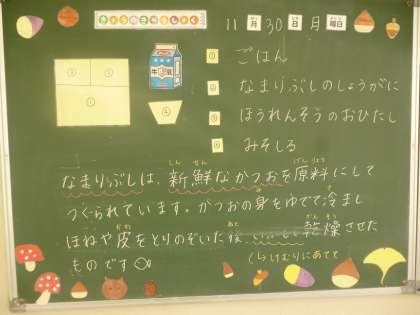 きゅうしょくこんだて
11月30日月曜日
がつ にち ようび
① ごはん
② なまりぶしのしょうがに
③ ほうれんそうのおひたし
④ みそしる
③ ②
①
④
牛乳
しん せん げん りょう
なまりぶしは、新鮮なかつおを原料にして
み さ
つくられています。かつおの身をゆでて冷まし
かわ あと かん そう
ほねや皮をとりのぞいた後、乾燥させた
ものです
けむりにあてて